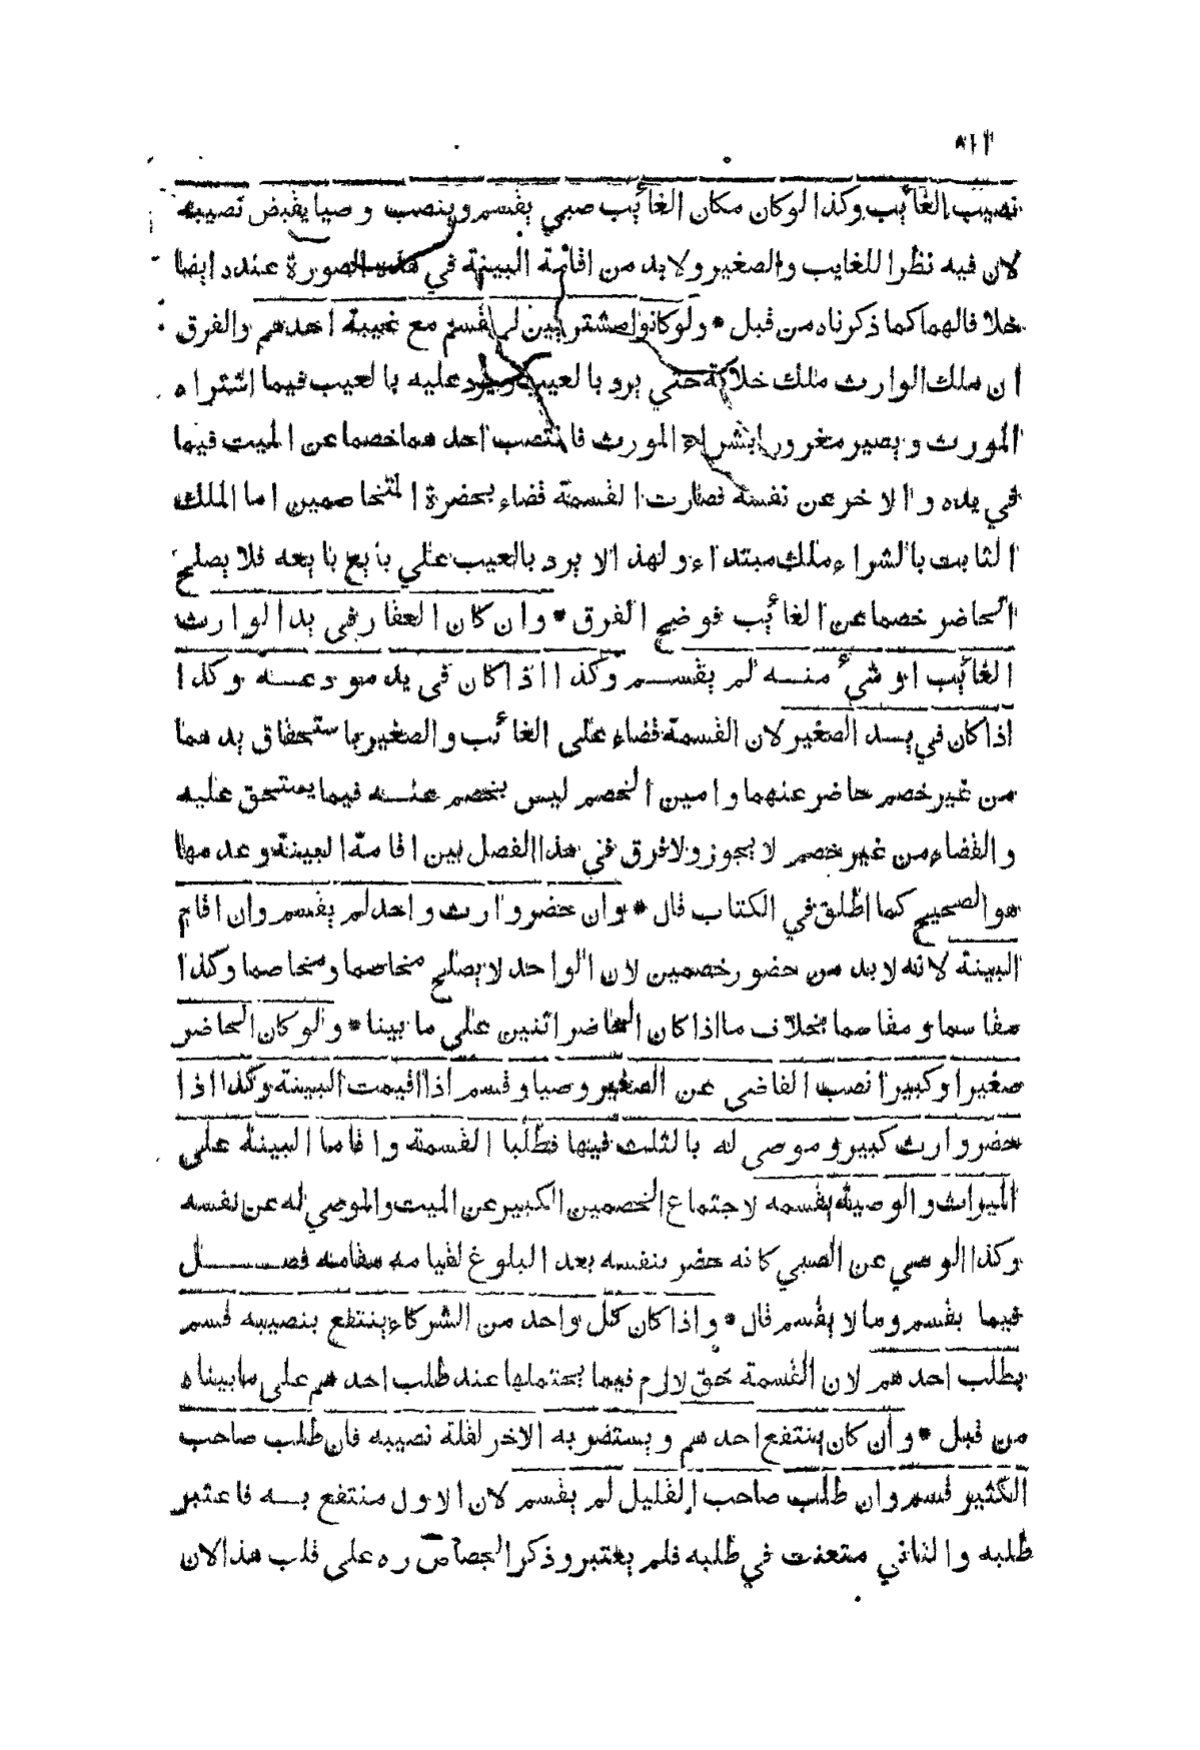 ٨١٢
نصيب الغائب وكذا لو كان مكان الغائب صبي يقسم وينصب وصيا يقبض نصيبه
لان فيه نظرا للغايب والصغير ولا بد من اقامة البينة في هذه الصورة عنده ايضا
خلافا لهما كما ذكرناه من قبل * ولو كانوا مشتريين لم يقسم مع غيبة احدهم والفرق
ان ملك الوارث ملك خلافة حتي يرد بالعيب ويرد عليه بالعيب فيما اشتراه
المورث ويصير مغرورا بشراء المورث فانتصب احدهما خصما عن الميت فيما
في يده والاخر عن نفسه فصارت القسمة قضاء بحضرة المتخاصمين اما الملك
الثابت بالشراء ملك مبتداء ولهذا لا يرد بالعيب علي بائع بايعه فلا يصلح
الحاضر خصما عن الغائب فوضح الفرق * وان كان العقار في يد الوارث
الغائب او شيء منه لم يقسم وكذا اذا كان في يد مودعه وكذا
اذا كان في يد الصغير لان القسمة قضاء على الغائب والصغير باستحقاق يدهما
من غير خصم حاضر عنهما وامين الخصم ليس بخصم عنه فيما يستحق عليه
والقضاء من غير خصم لا يجوز ولا فرق في هذا الفصل بين اقامة البينة وعدمها
هو الصحيح كما اطلق في الكتاب قال * وان حضر وارث واحد لم يقسم وان اقام
البينة لانه لا بد من حضور خصمين لان الواحد لا يصلح مخاصما ومخاصما وكذا
مقاسما ومقاسما بخلاف ما اذا كان الحاضر اثنين علي ما بينا * ولو كان الحاضر
صغيرا وكبيرا نصب القاضي عن الصغير وصيا وقسم اذا اقيمت البينة وكذا اذا
حضر وارث كبير وموصى له بالثلث فيها فطلبا القسمة واقاما البينة علي
الميراث والوصية يقسمه لاجتماع الخصمين الكبير عن الميت والموصي له عن نفسه
وكذا الوصي عن الصبي كانه حضر بنفسه بعد البلوغ لقيامه مقامه فصل
فيما يقسم وما لا يقسم قال * واذا كان كل واحد من الشركاء ينتفع بنصيبه قسم
بطلب احدهم لان القسمة حق لازم فيما يحتملها عند طلب احدهم علي ما بيناه
من قبل * وان كان ينتفع احدهم ويستضر به الاخر لقلة نصيبه فان طلب صاحب
الكثير قسم وان طلب صاحب القليل لم يقسم لان الاول منتفع به فاعتبر
طلبه والثاني متعنت في طلبه فلم يعتبر وذكر الجصاص ره على قلب هذا لان